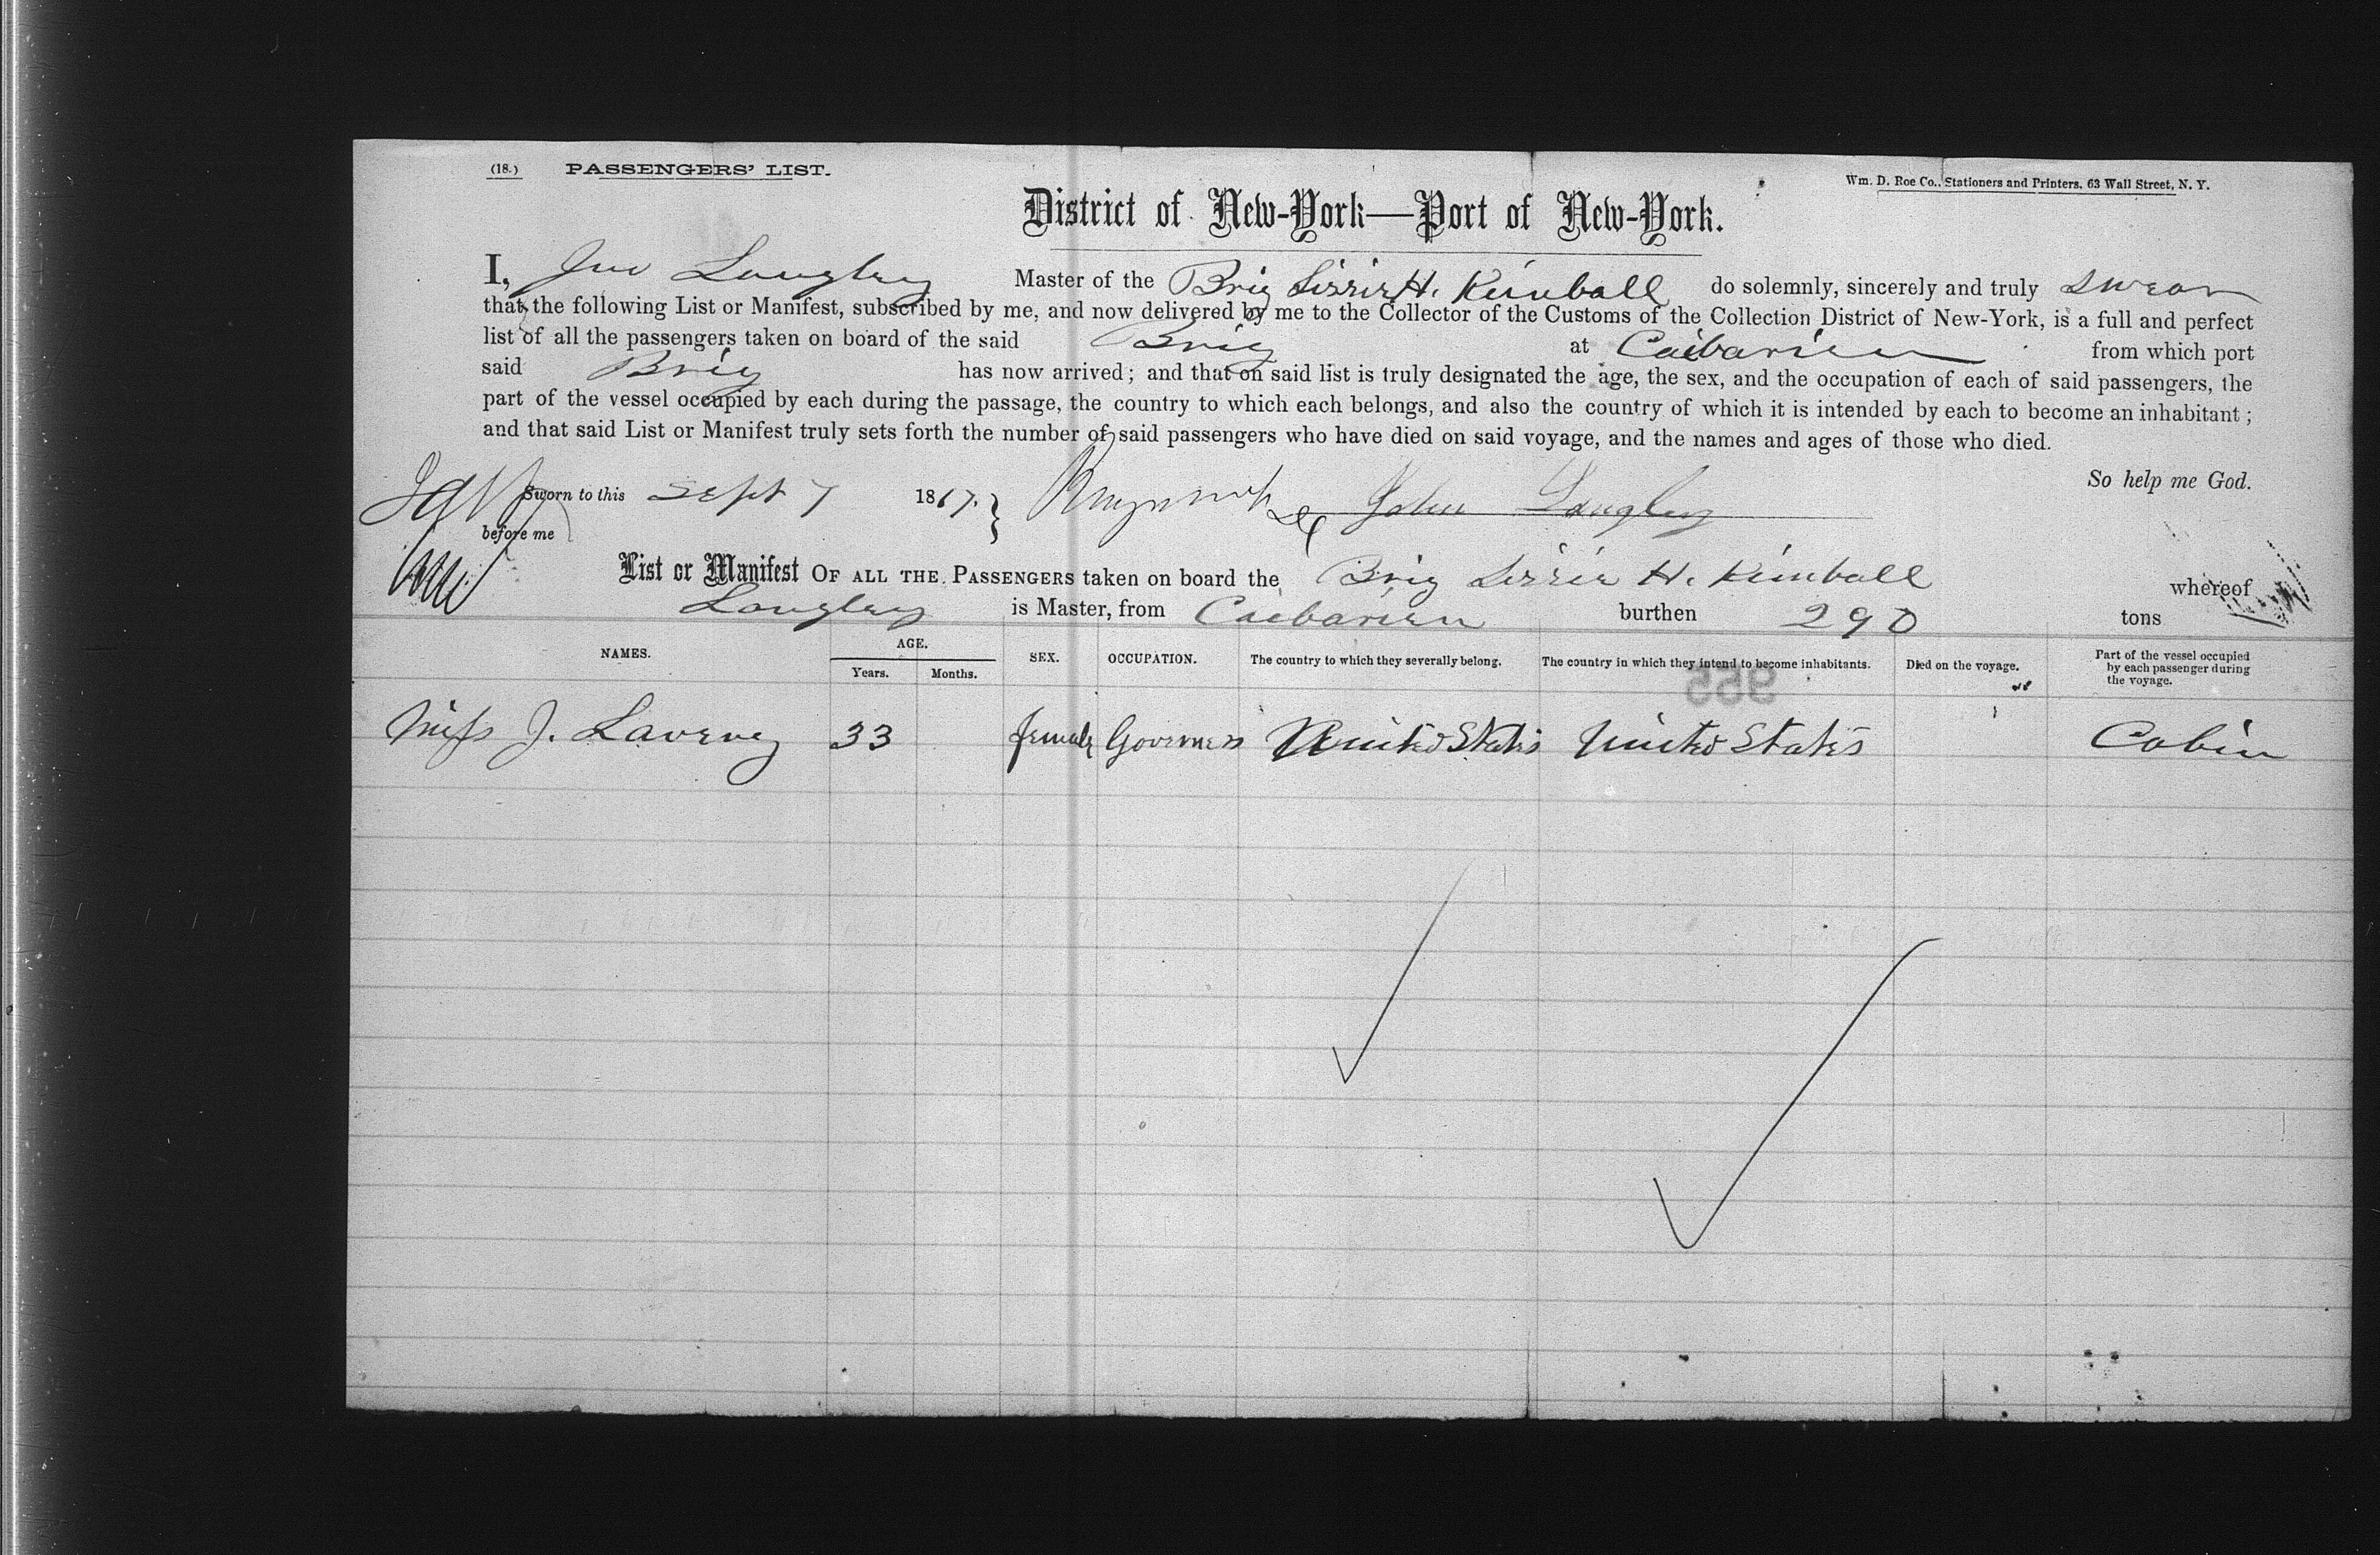 (18.) PASSENGERS' LIST.
Wm. D. Roe Co., Stationers and Printers, 63 Wall Street, N. Y.
District of New-York—Port of New-York.
I, Jno Langley Master of the Brig Lizzie H. Kimball do solemnly, sincerely and truly swear
that the following List or Manifest, subscribed by me, and now delivered by me to the Collector of the Customs of the Collection District of New-York, is a full and perfect
list of all the passengers taken on board of the said Brig at Caibarien from which port
said Brig has now arrived; and that on said list is truly designated the age, the sex, and the occupation of each of said passengers, the
part of the vessel occupied by each during the passage, the country to which each belongs, and also the country of which it is intended by each to become an inhabitant;
and that said List or Manifest truly sets forth the number of said passengers who have died on said voyage, and the names and ages of those who died.
So help me God.
Sworn to this Sept 7 1867. } John Langley
before me
List or Manifest OF ALL THE PASSENGERS taken on board the Brig Lizzie H. Kimball whereof
Langley is Master, from Caibarien burthen 290 tons
NAMES. AGE. Years. Months. SEX. OCCUPATION. The country to which they severally belong. The country in which they intend to become inhabitants. Died on the voyage. Part of the vessel occupied by each passenger during the voyage.
955
Miss J. Laveney 33 female Governess United States United States Cabin